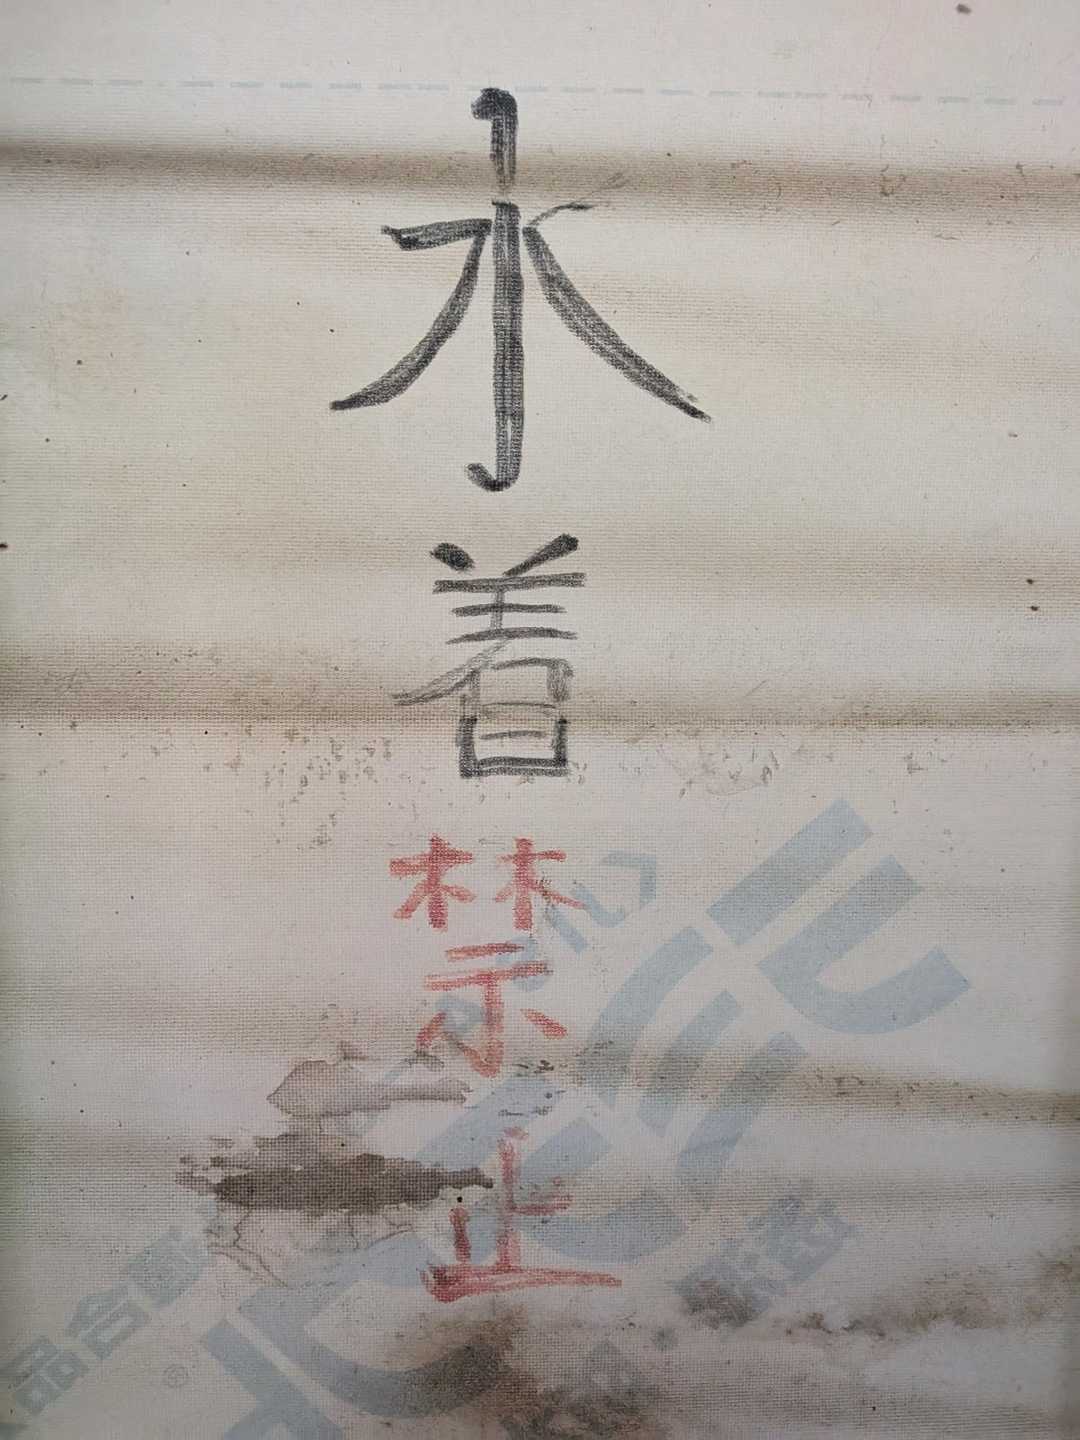 水着禁止